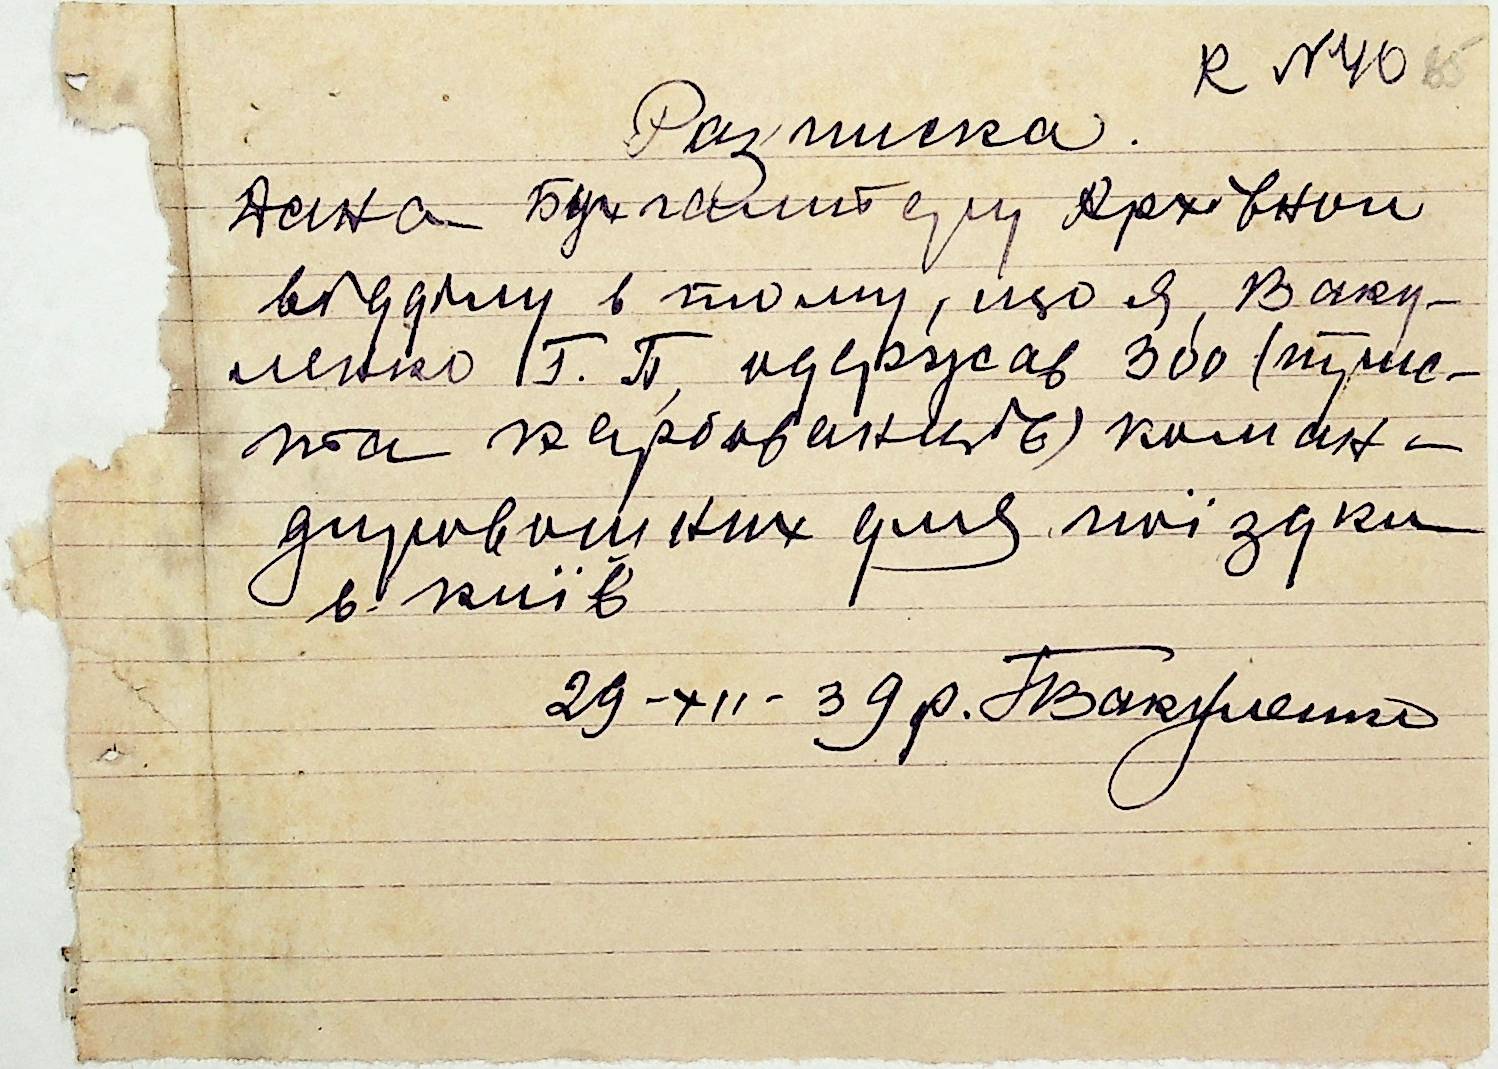 К №40 85
Разписка.
Дана Бухгалтеру Архівной
відділу в тому, що я, Ваку-
ленко Г. П, одержав 300 (трис-
та карбованців) коман-
дировошних для поїздки
в Київ
29-XII-39 р. ГВакуленко